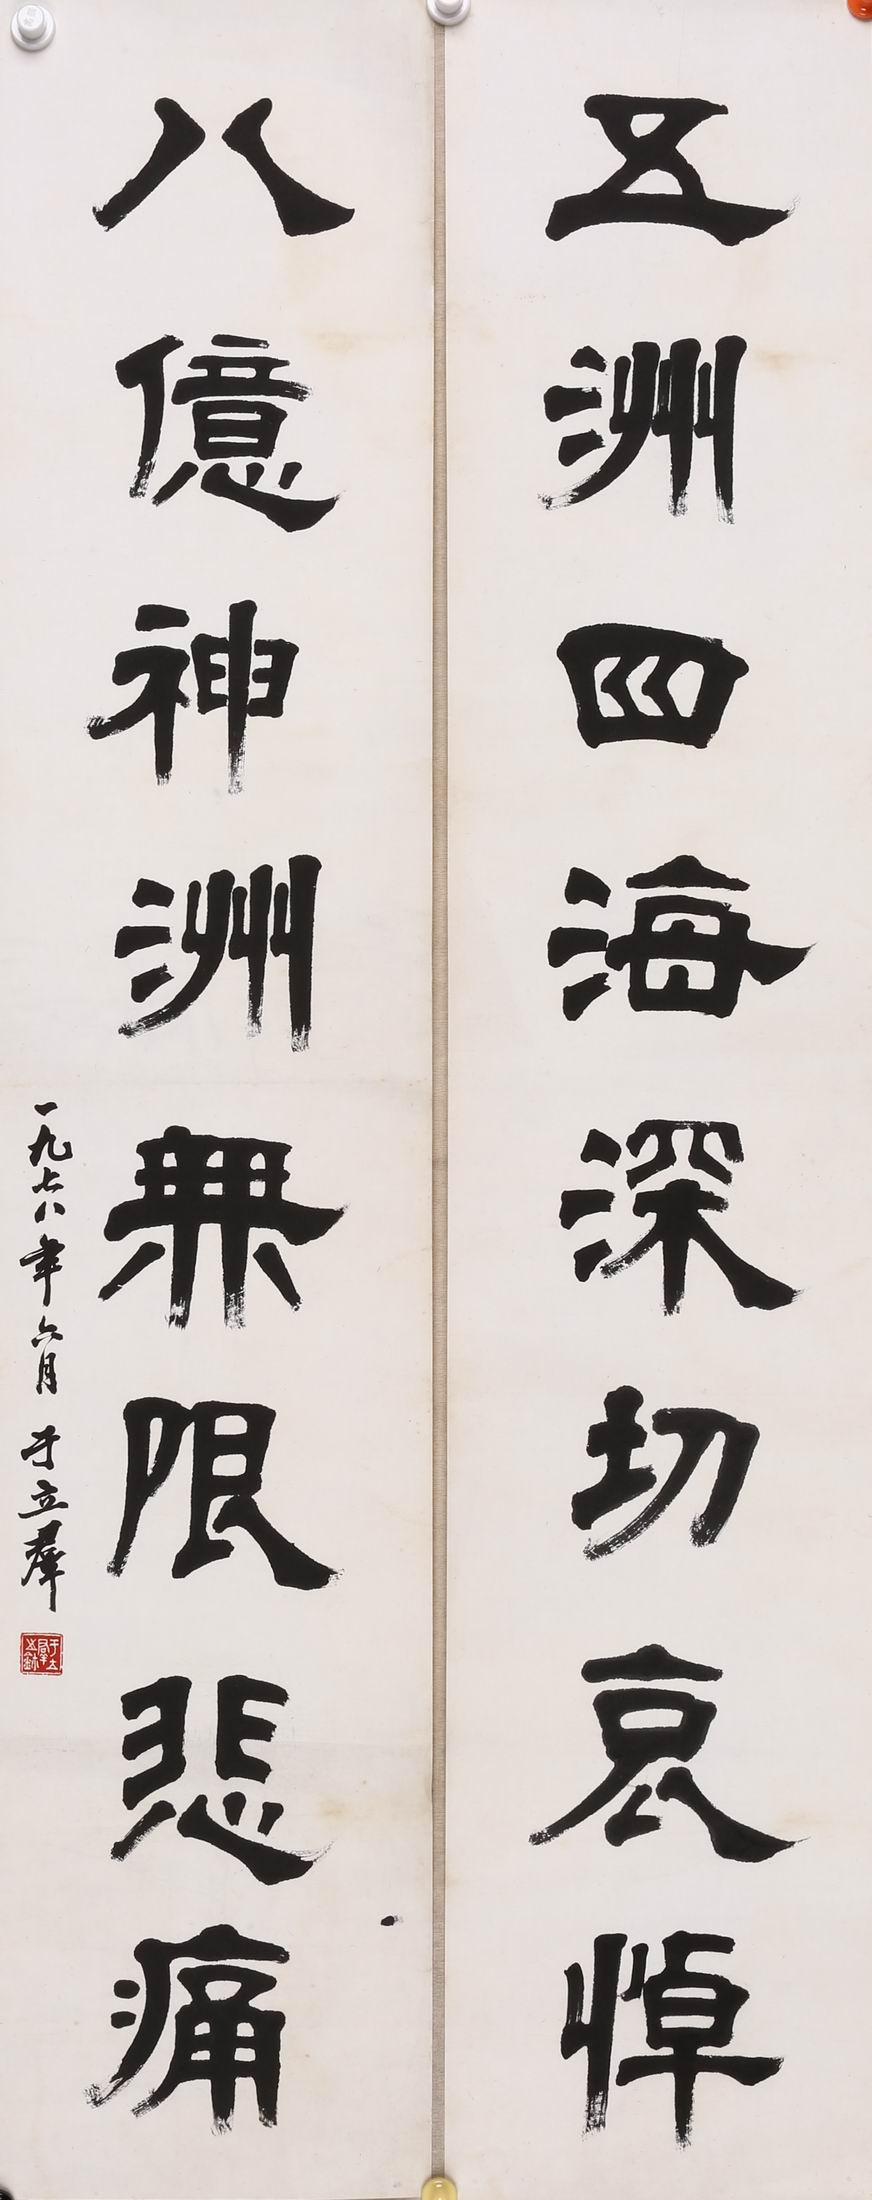 五洲四海深切哀悼
八億神洲無限悲痛
一九七八年六月 于立羣